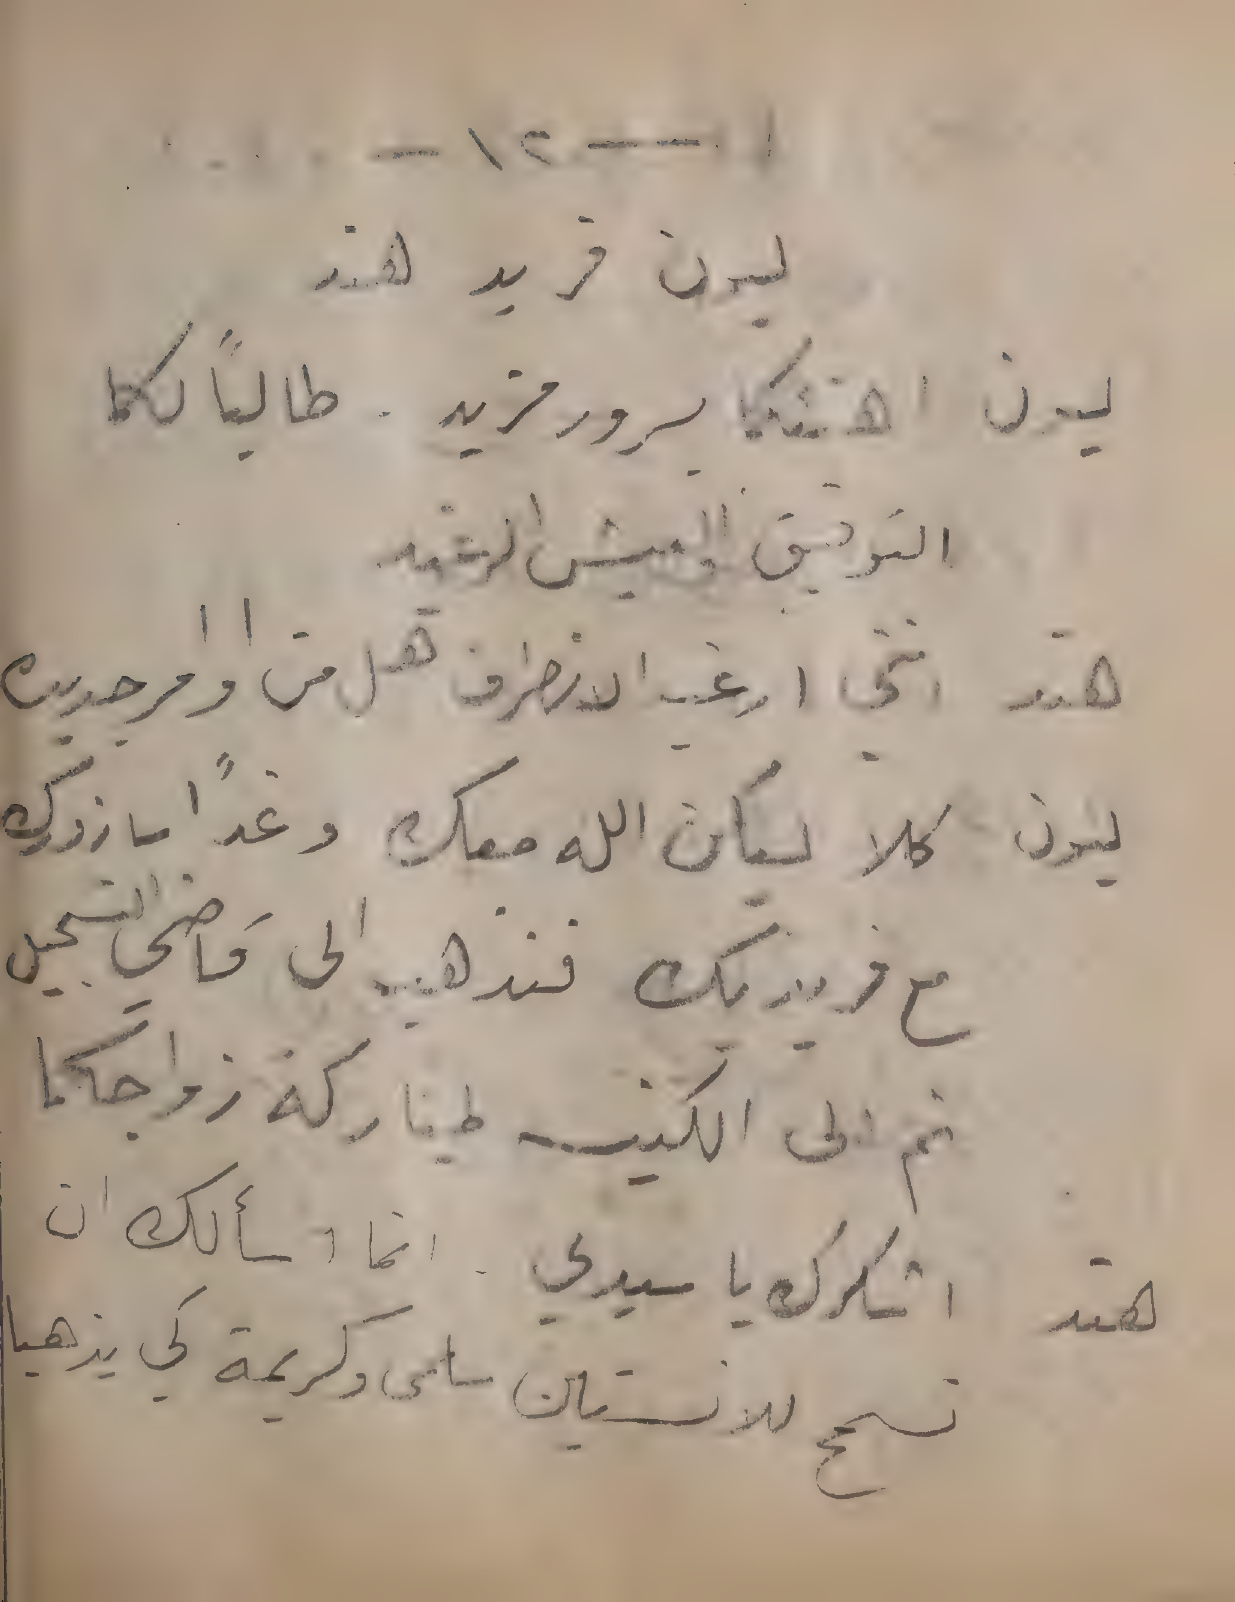 — ١٢ —
ليون فريد هند
ليون اهنئكما بسرور مزيد . طالباً لكما
التوفيق العيش الرغيد
هند انني ارغب الانصراف هل من اوامر جديدة
ليون كلا ليكن الله معك وغداً سازورك
مع فريد بك فنذهب الى قاضي التسجيل
ثم الى الكنيسة لمباركة زواجكما
هند اشكرك يا سيدي . انما اسألك ان
تسمح للانستين سلمى وكريمة كي يذهبا